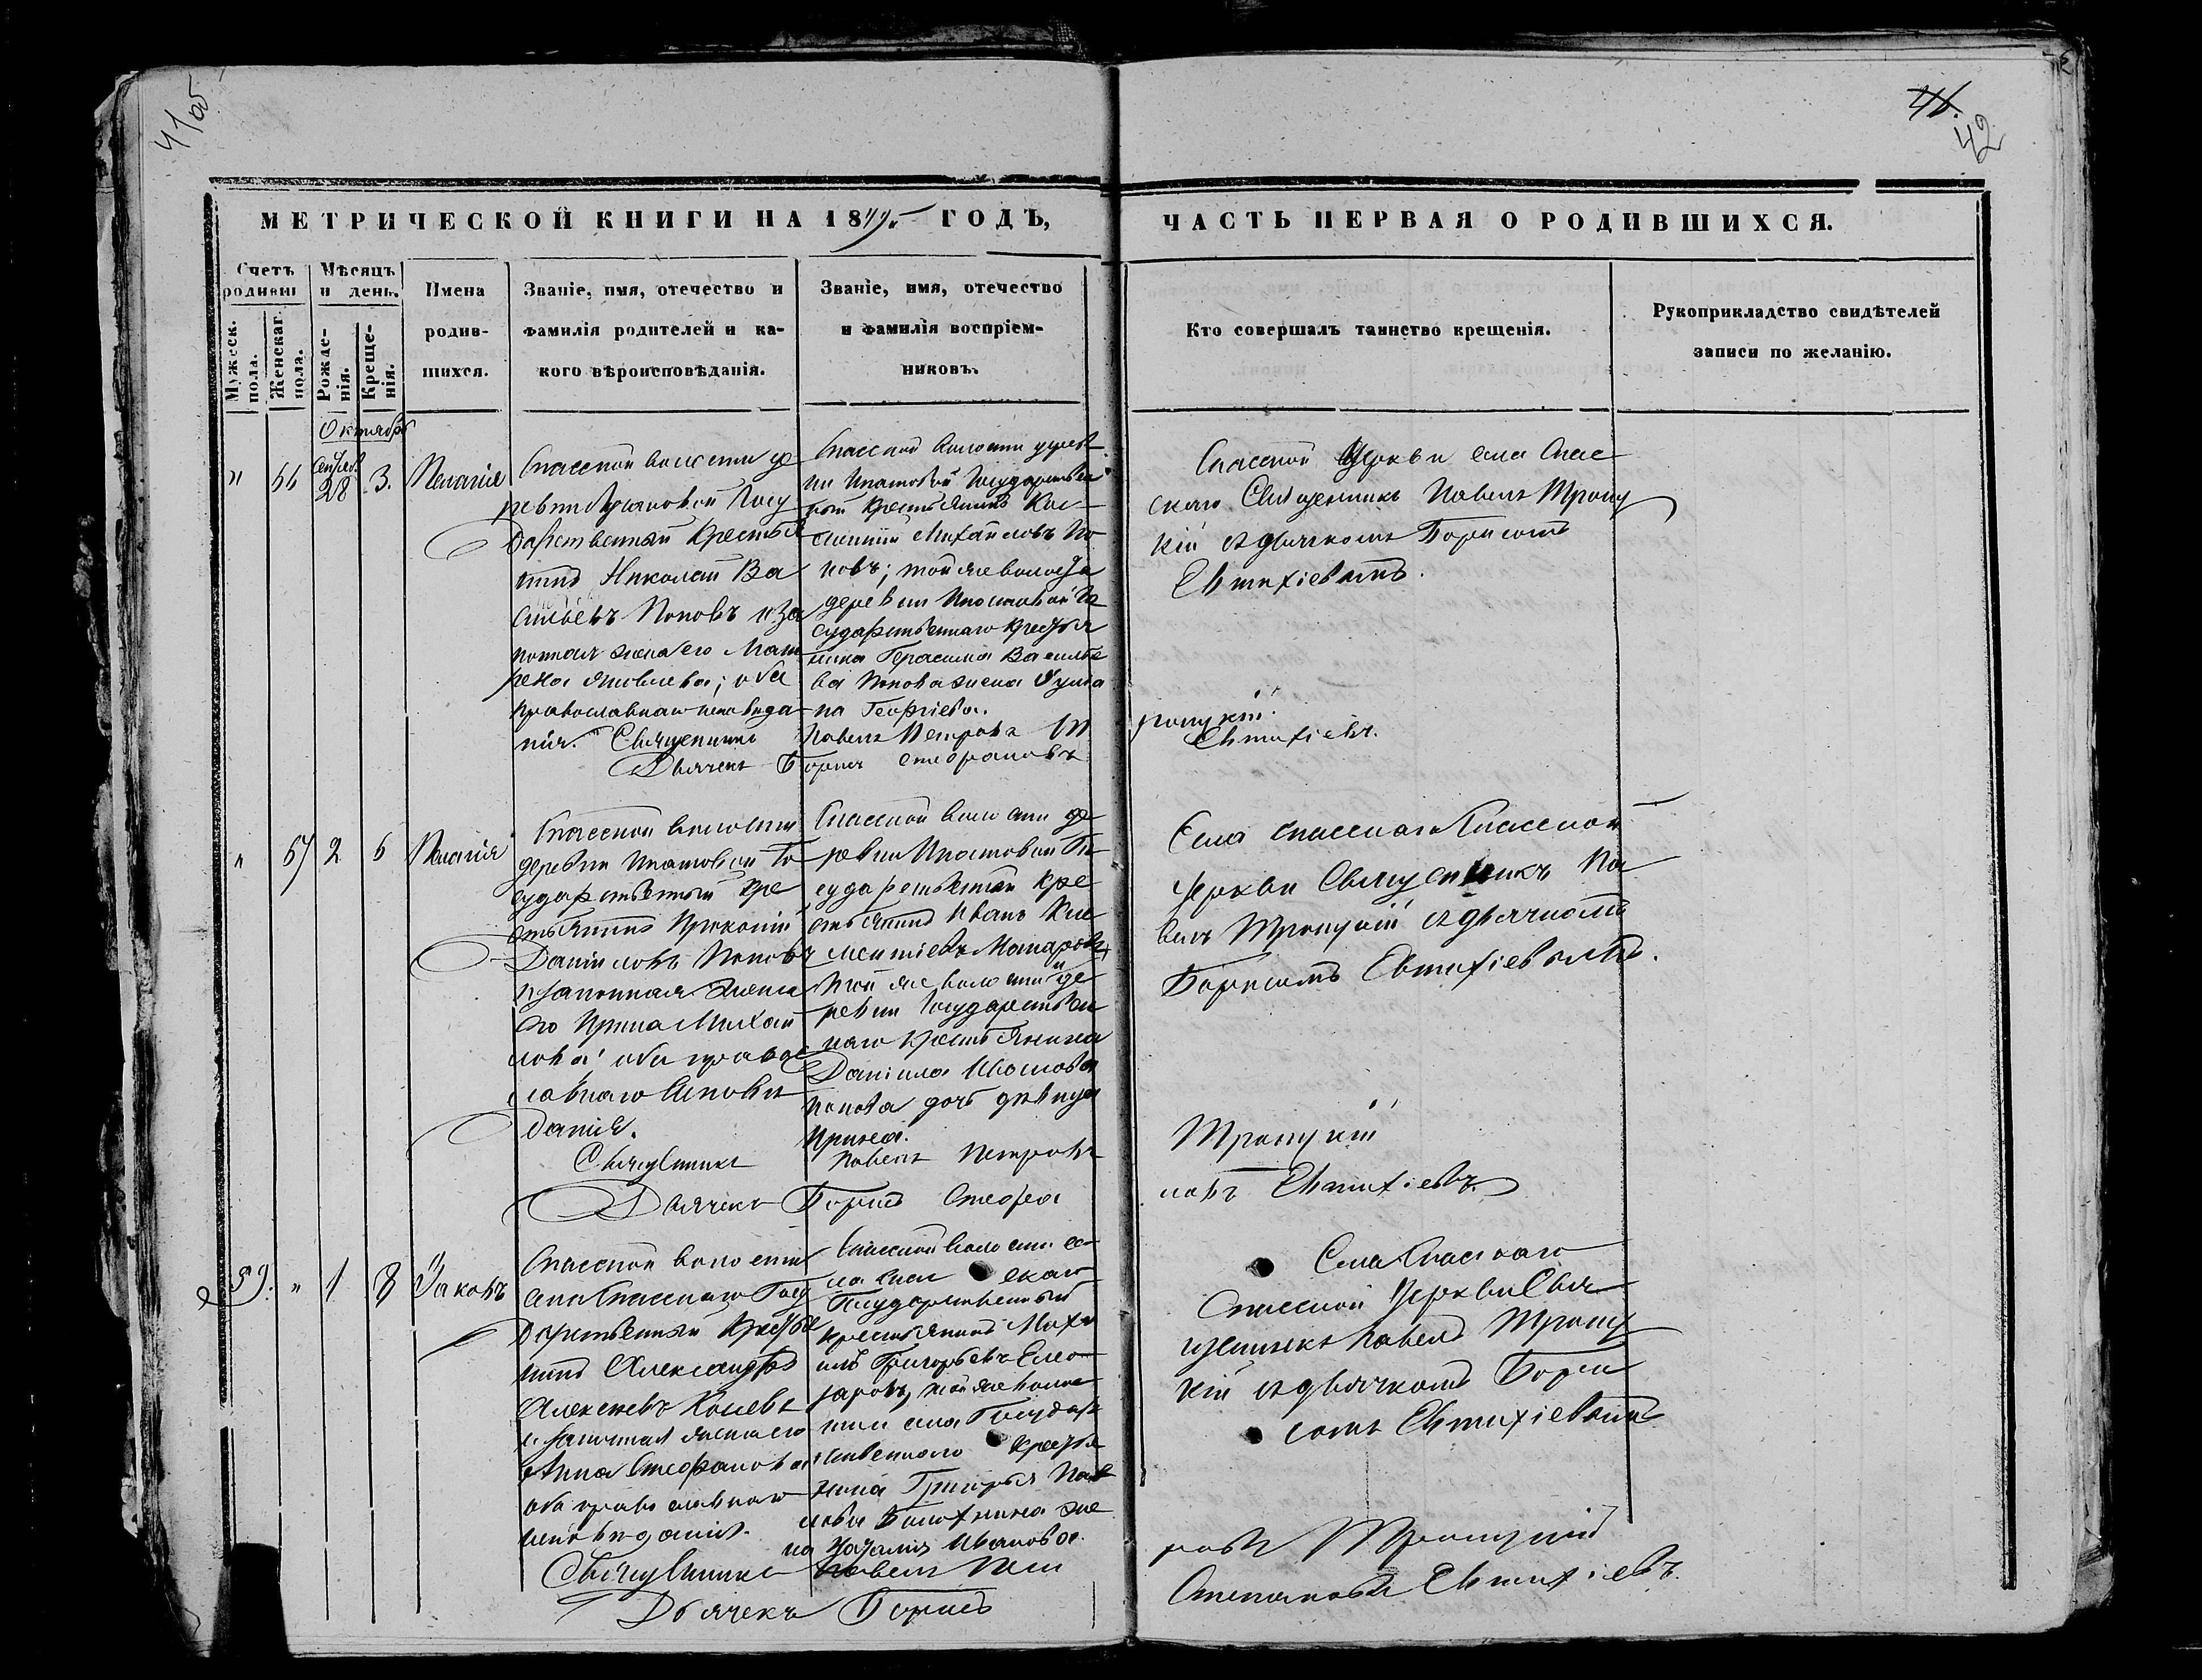 41об
46.
42
МЕТРИЧЕСКОЙ КНИГИ НА 1845 ГОДЪ,
ЧАСТЬ ПЕРВАЯ О РОДИВШИХСЯ.
Счетъ родивш
Мѣсяцъ и день.
Мужеск. пола.
Женскаг. пола.
Рожденія.
Крещенія.
Имена
родив-
шихся.
Званіе, имя, отечество и
фамилія родителей и ка-
кого вѣроисповѣданія.
Званіе, имя, отечество
и фамилія воспріем-
никовъ.
Кто совершалъ таинство крещенія.
Рукоприкладство свидѣтелей
записи по желанію.
Октябрь
" 66 28 3. Пелагія
Спасской волости де
ревни Государственный Крестья
нинъ Николай Ва
сильевъ Поповъ и За
конная жена его Мат
рена Яковлева; оба
православнаго исповѣда
нія. Священникъ
Дьячекъ
Спасской волости дерев
ни Ипатовой Государствен
ный Крестьянинъ
Михайловъ По
повъ; той же волости
деревни Ипатовой Го
сударственнаго Крестья
нина Герасима Василье
ва Попова жена
на Георгіева.
Павелъ Петровъ
Борисъ Стефановъ
Спасской Церкви села Спас
скаго Священникъ Павелъ Троиц
кій съ дьячкомъ Борисомъ
Евтихіевымъ.
роицкій
Евтихіевъ.
" 67 2 6 Пелагія
Спасской волости
деревни Ипатовой Го
сударственный Кре
стьянинъ Прокопій
Даниловъ Поповъ
и законная жена
его Ирина Михай
лова; оба правос
лавнаго Исповѣ
данія.
Священникъ
Дьячекъ
Спасской волости де
ревни Ипатовой Го
сударственный Кре
стьянинъ Иванъ Кле
ментіевъ
той же волости и де
ревни Государствен
наго Крестьянина
Даніила Иванова
Попова дочь дѣвица
Ирина.
Павелъ Петровъ
Борисъ Стефа
Села Спасскаго Спасской
Церкви Священникъ Па
велъ Троицкій съ дьячкомъ
Борисомъ Евтихіевымъ.
Троицкій
новъ Евтихіевъ
59. " 1 8 Іаковъ
Спасской волости
села Спасскаго Госу
дарственный Крестья
нинъ Александръ
Алексѣевъ
и законная жена его
Анна Стефанова
оба православнаго
исповѣданія.
Священникъ
Дьячекъ
Спасской волости се
ла Спасскаго
Государственный
Крестьянинъ Миха
илъ Григорьевъ
той же волос
ти села Государ
ственнаго Крестья
нина Григорья Пав
лова же
на Наталія Иванова.
Павелъ Пет
Борисъ
Села Спасскаго
Спасской Церкви Свя
щенникъ Павелъ Троиц
кій съ дьячкомъ Бори
сомъ Евтихіевымъ
ровъ Троицкій
Степановъ Евтихіевъ.